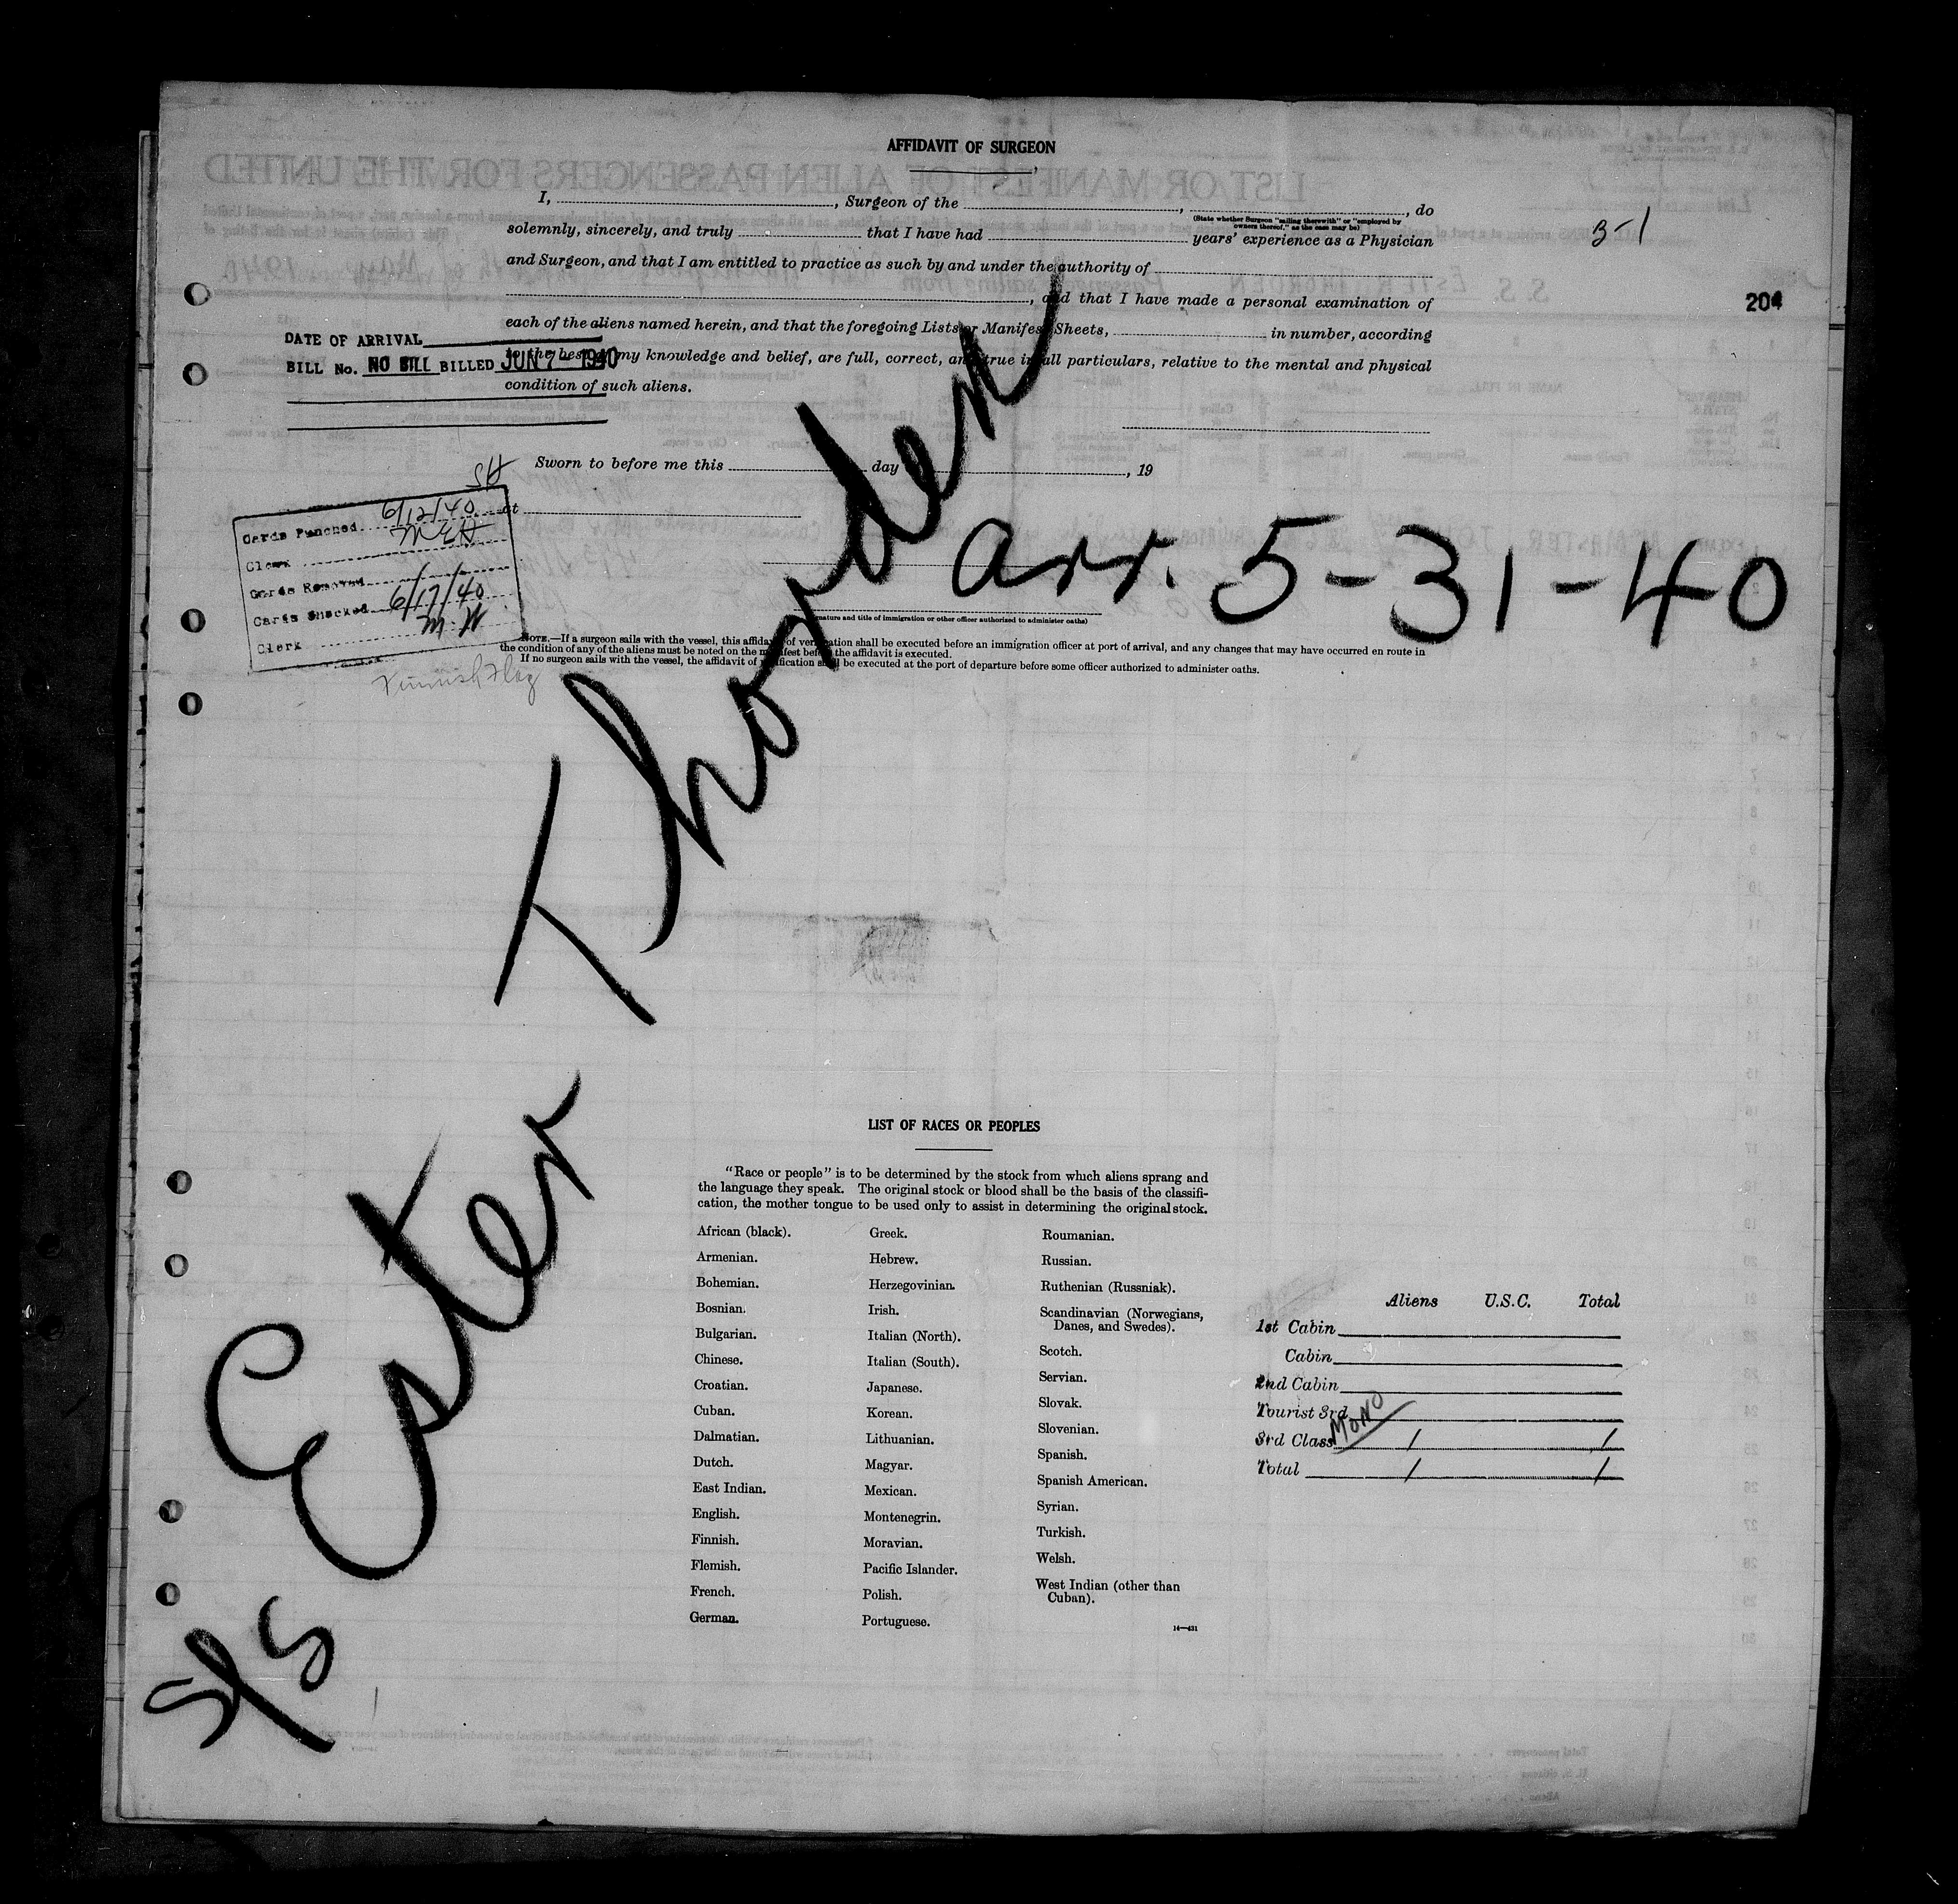 AFFIDAVIT OF SURGEON
I, , Surgeon of the , , do
(State whether Surgeon "sailing therewith" or "employed by
owners thereof," as the case may be)
solemnly, sincerely, and truly that I have had years' experience as a Physician
and Surgeon, and that I am entitled to practice as such by and under the authority of
, and that I have made a personal examination of
each of the aliens named herein, and that the foregoing Lists or Manifest Sheets, in number, according
to the best of my knowledge and belief, are full, correct, and true in all particulars, relative to the mental and physical
condition of such aliens.
3-1
204
DATE OF ARRIVAL
BILL No. NO BILL BILLED JUN 7 - 1940
Sworn to before me this day , 19
at
SH
Cards Punched 6/12/40
MEH
Clerk
Cards Removed
Cards Checked 6/17/40
Clerk M.W
Finnish Flag
arr. 5-31-40
(Signature and title of immigration or other officer authorized to administer oaths)
NOTE.—If a surgeon sails with the vessel, this affidavit of verification shall be executed before an immigration officer at port of arrival, and any changes that may have occurred en route in
the condition of any of the aliens must be noted on the manifest before the affidavit is executed.
If no surgeon sails with the vessel, the affidavit of verification shall be executed at the port of departure before some officer authorized to administer oaths.
S/S Ester Thorden
LIST OF RACES OR PEOPLES
"Race or people" is to be determined by the stock from which aliens sprang and
the language they speak. The original stock or blood shall be the basis of the classifi-
cation, the mother tongue to be used only to assist in determining the original stock.
African (black).
Armenian.
Bohemian.
Bosnian.
Bulgarian.
Chinese.
Croatian.
Cuban.
Dalmatian.
Dutch.
East Indian.
English.
Finnish.
Flemish.
French.
German.
Greek.
Hebrew.
Herzegovinian.
Irish.
Italian (North).
Italian (South).
Japanese.
Korean.
Lithuanian.
Magyar.
Mexican.
Montenegrin.
Moravian.
Pacific Islander.
Polish.
Portuguese.
Roumanian.
Russian.
Ruthenian (Russniak).
Scandinavian (Norwegians,
Danes, and Swedes).
Scotch.
Servian.
Slovak.
Slovenian.
Spanish.
Spanish American.
Syrian.
Turkish.
Welsh.
West Indian (other than
Cuban).
14—431
Aliens U.S.C. Total
1st Cabin
Cabin
2nd Cabin
Tourist 3rd
MONO
3rd Class 1 1
Total 1 1